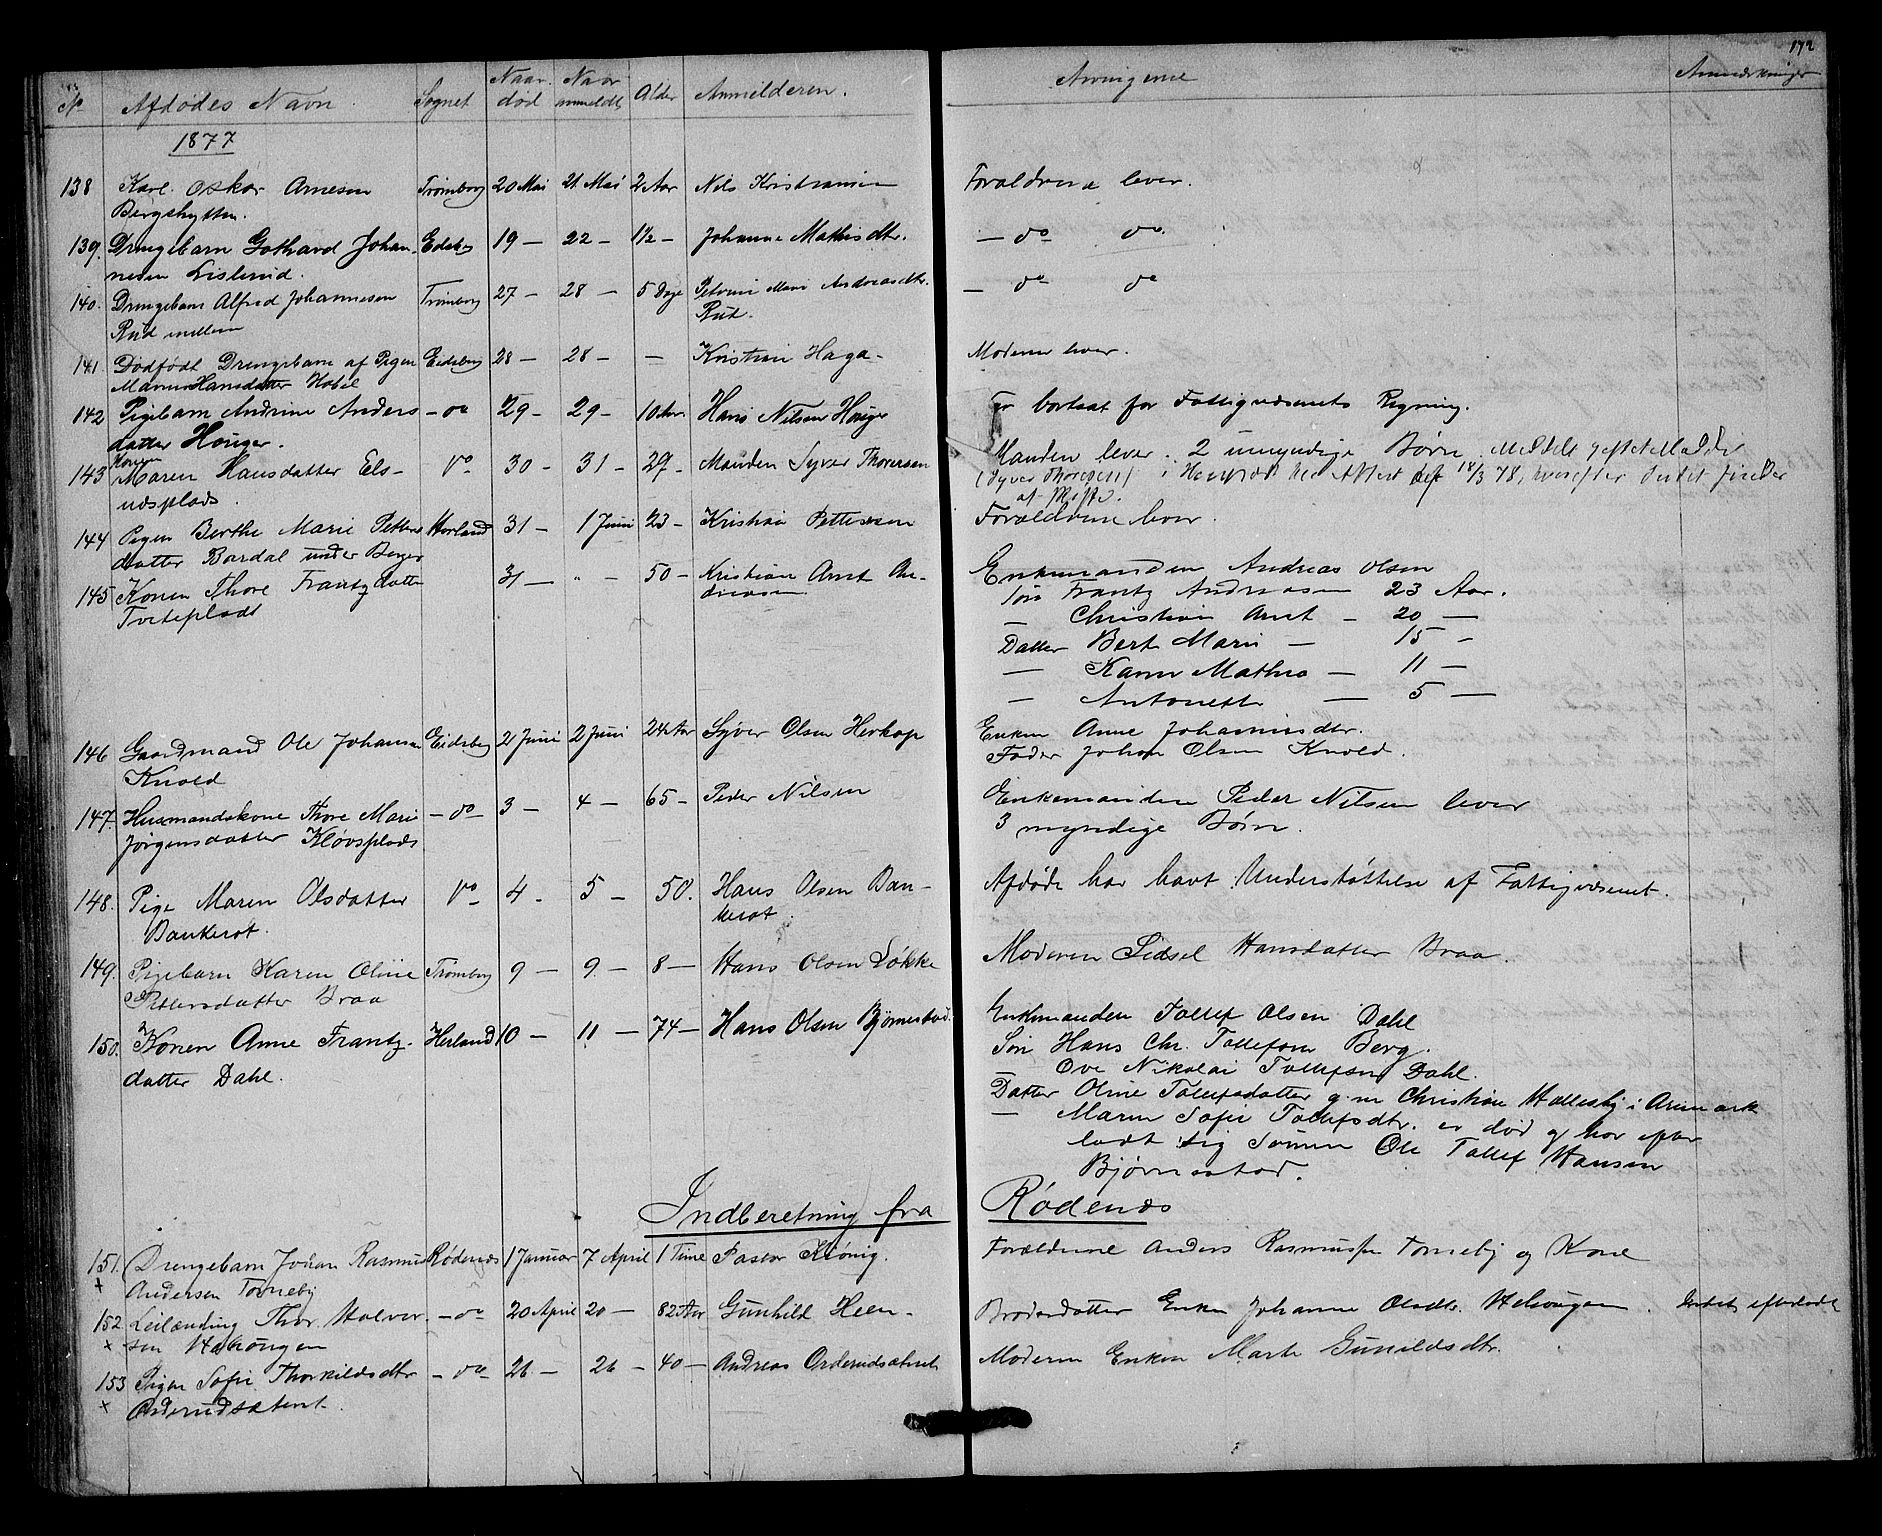 172
No Afdødes Navn. Sognet Naar død Naar anmeldt Alder Anmelderen. Arvingerne Anmærkninger
1877
138 Karl Oskar Arnesen Trømborg 20 Mai 21 Mai 2 Aar Nils Kristiansen Forældrene lever.
Bergshytten.
139. Drengebarn Gothard Johan- Eidsbg 19 — 22 — 1½ — Johanne Mathisdtr. — do do
nesen Lislerud.
140. Drengebarn Alfred Johannesen Trømborg 27 — 28 — 5 Dage Petrine Marie Andreasdtr. — do do
Rud mellem Rud.
141 Dødfødt Drengebarn af Pigen Eidsberg 28 — 28 — — Kristian Haga — Moderen lever.
Maren Hansdatter Kobil
142 Pigebarn Andrine Anders — do 29 — 29 — 10 Aar. Hans Nilsen Houger Er bortsat for Fattigvæsenets Regning.
datter Houger.
143 Konen Maren Hansdatter Els- Do 30 — 31 — 29 — Manden Syver Thoresen Manden lever. 2 umyndige Børn. Meddelt
udsplads. (Syver Thoresen) i Henhold til Attest af 18/3 78, hvorefter Intet finder
af Skifte.
144 Pigen Berthe Marie Petters Herland 31 — 1 Juni 23 — Kristian Pettersen Forældrene lever.
datter Bardal under Berger
145 Konen Thore Frantzdatter 31 — " — 50 — Kristian Arnt An- Enkemanden Andreas Olsen
Tveteplads dreasen Søn Frantz Andreasen 23 Aar.
— Christian Arnt — 20 —
Datter Berte Marie — 15 —
— Karen Mathea — 11 —
— Antonette — 5 —
146 Gaardmand Ole Johansen Eidsberg 2 Juni 2 Juni 24 Aar Syver Olsen Herkop Enken Anne Johannisdtr.
Knold Fader Johan Olsen Knold.
147. Husmandskone Thore Marie — do — 3 — 4 — 65 — Peder Nilsen Enkemanden Peder Nilsen lever
Jørgensdatter Kløvsplads 3 myndige Børn.
148. Pige Maren Olsdatter Do 4 — 5 — 50. Hans Olsen Ban- Afdøde har havt Understøttelse af Fattigvæsenet.
Bankerot. kerot.
149. Pigebarn Karen Oline Trømborg 9 — 9 — 8 — Hans Olsen Løkke Moderen Sidsel Hansdatter Braa.
Pettersdatter Braa
150. Konen Anne Frantz- Herland 10 — 11 — 74 — Hans Olsen Bjørnestad. Enkemanden Tollef Olsen Dahl
datter Dahl. Søn Hans Chr. Tollefsen Berg.
Ove Nikolai Tollefsen Dahl.
Datter Oline Tollefsdatter g. m. Christian Hallesby i Aremark
— Maren Sofie Tollefsdtr. er død og har efter
ladt sig Sønnen Ole Tollef Hansen
Bjørnestad.
Indberetning fra Rødenæs
151. Drengebarn Johan Rasmus Rødenæs 1 Januar 7 April 1 Time Pastor Krönig. Forældrene Anders Rasmussen Torneby og Kone
+ Andersen Torneby
152 Leilænding Thor Halvor- — do 20 April 20 — 82 Aar Gunhild Heen — Broderdatter Enken Johanne Olsdtr. Helvougen. Intet efterladt
× sen Helvougen
153 Pigen Sofie Thorkildsdtr — do — 26 — 26 — 40 — Andreas Orderudsætret Moderen Enken Marte Gunildsdtr.
× Orderudsætret.